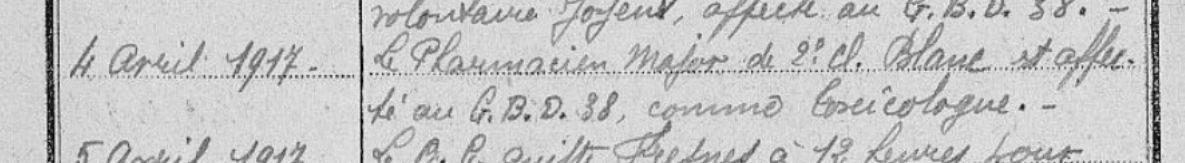 volontaire Joyeux, affecté au G.B.D. 38. –
4 Avril 1917 - Le Pharmacien Major de 2e Cl. Blanc est affec-
té au G.B.D. 38, comme toxicologue. –
5 Avril 1917 Le G. quitte Fresnes à 12 heures pour